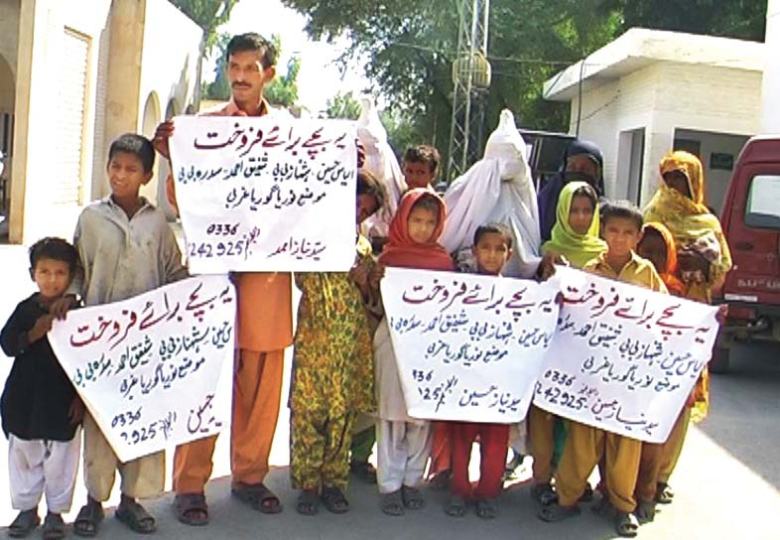 یہ بچے برائے فروخت
الیاس حسین، شہناز بی بی، شفیق احمد، سدرہ بی بی
موضع نوریا گوریا غربی
0336
242925
سید نیاز احمد
یہ بچے برائے فروخت
حسین، شہناز بی بی، شفیق احمد، سدرہ بی بی
موضع نوریا گوریا غربی
0336
925
حسین
یہ بچے برائے فروخت
الیاس حسین، شہناز بی بی، شفیق احمد، سدرہ بی بی
موضع نوریا گوریا غربی
936
925
سید نیاز حسین
یہ بچے برائے فروخت
الیاس حسین، شہناز بی بی، شفیق احمد، سدرہ بی بی
موضع نوریا گوریا غربی
0336
242925
سید نیاز حسین